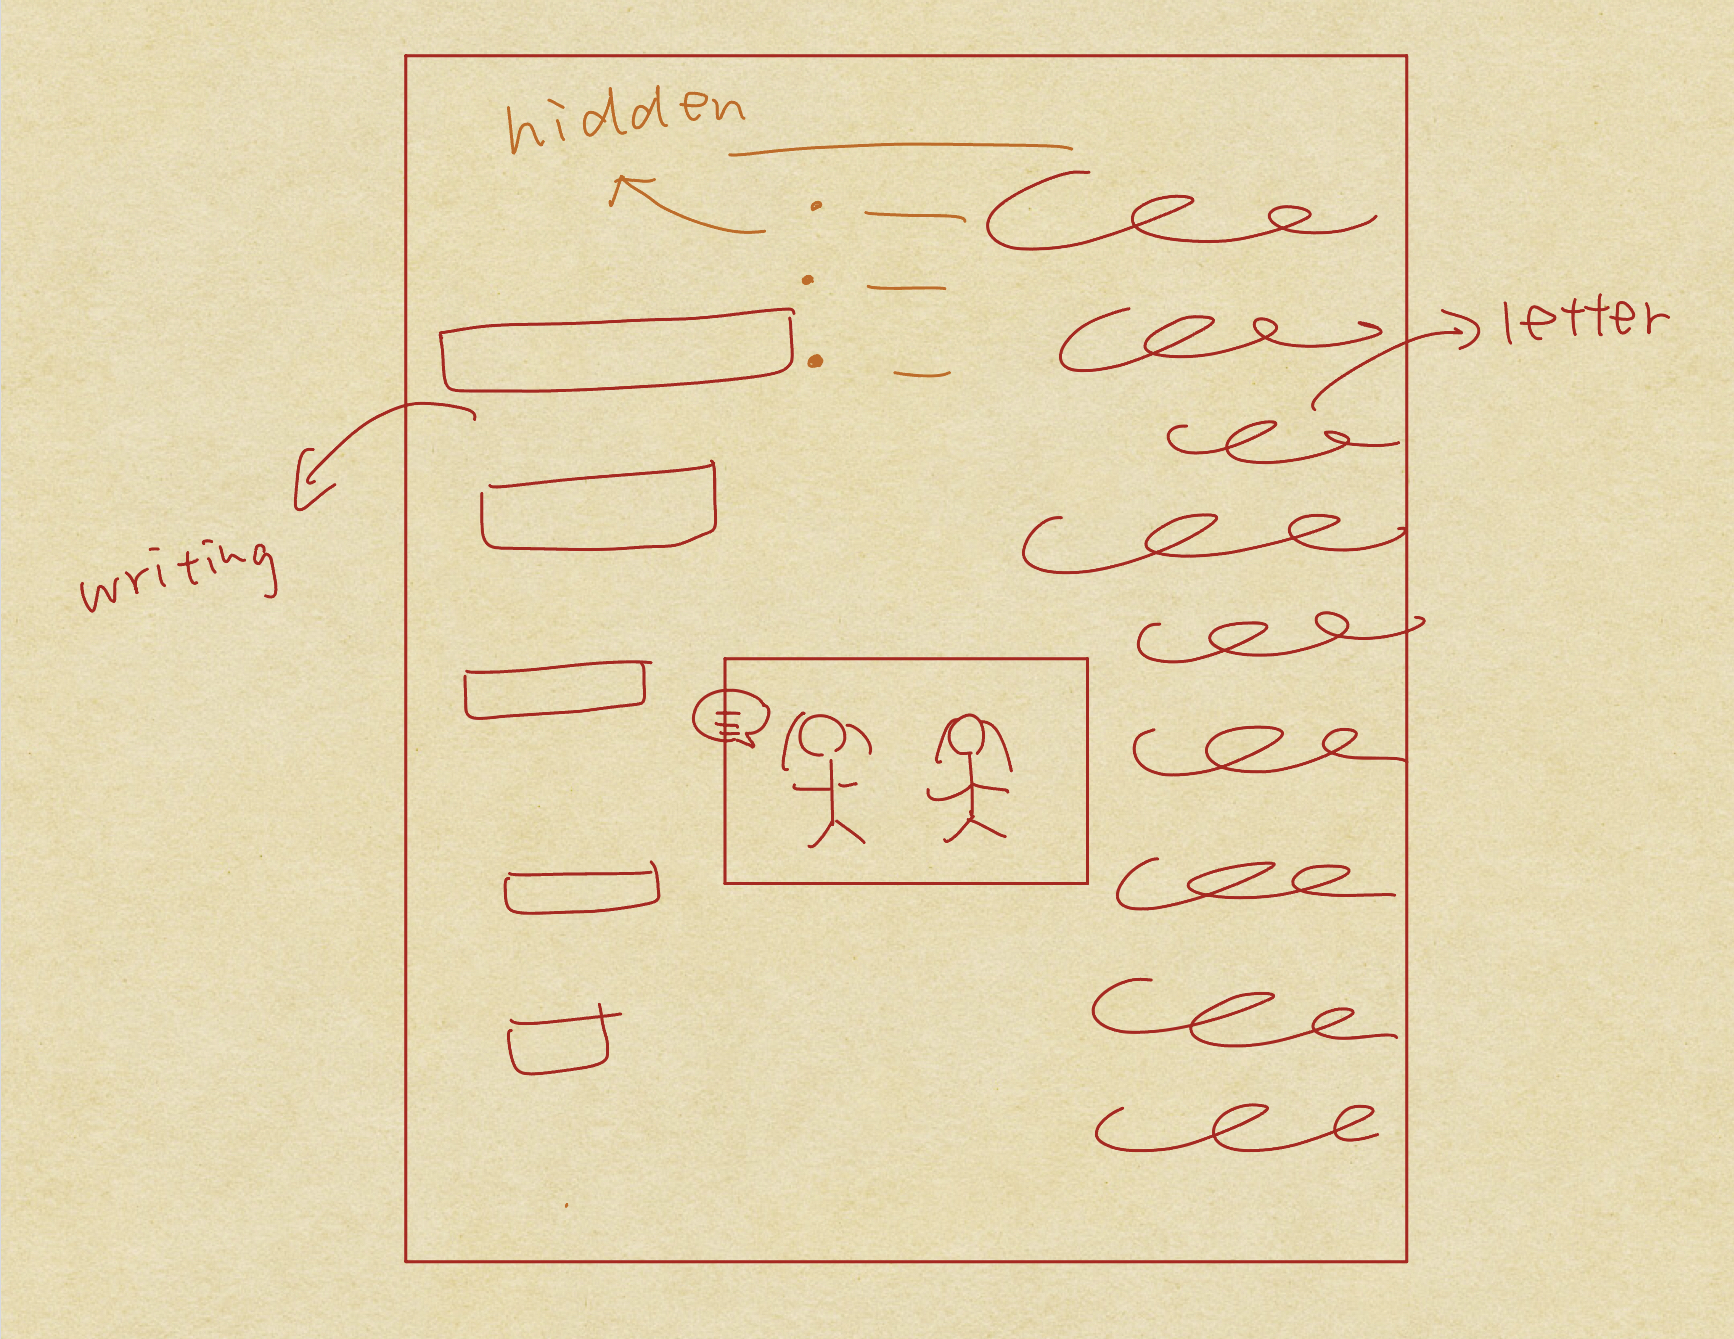 hidden
letter
writing